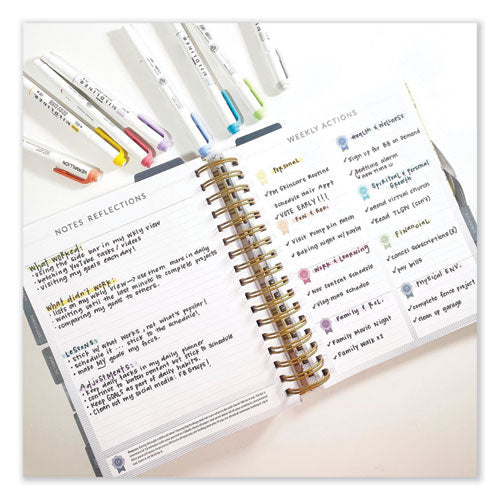 MILDLINER
MILDLINER
MILDLINER
VERMILLION
NOTES REFLECTIONS
What worked:
• using the side bar in my wkly view
• batching YouTube tasks/videos
• visiting my goals each day!
What didn't work:
• lists in my wkly view → use them more in daily
• waiting until the last minute to complete projects
• comparing my goals to others.
Lessons:
• stick w/ what works, not what's popular!
• if it's a task, stick to the schedule!
• make MY goals my focus.
Adjustments:
• keep daily tasks in my daily planner
• continue to batch content but stick to schedule
• Keep GOALS as part of daily habits.
• Clean out my social media: FB Groups!
WEEKLY ACTIONS
Personal
✓PM Skincare Routine
Schedule Hair Appt
✓VOTE EARLY!!!
Fun & Rec.
✓Visit Pump Kin Patch
✓Baking night w/Karly
Work & Learning
✓New content schedule
✓Vlog mas schedule
Family & Rel.
✓Family Movie Night
✓Family Walk x2
Health & Wellness
✓Sign up for BB on Demand
✓Bedtime alarm
Spiritual & Personal
Growth
✓Attend virtual church
✓Read TLGDN (curr)
Financial
✓Cancel Subscription(s)
✓pay bills
Physical ENV.
✓complete fence project
✓clean up garage